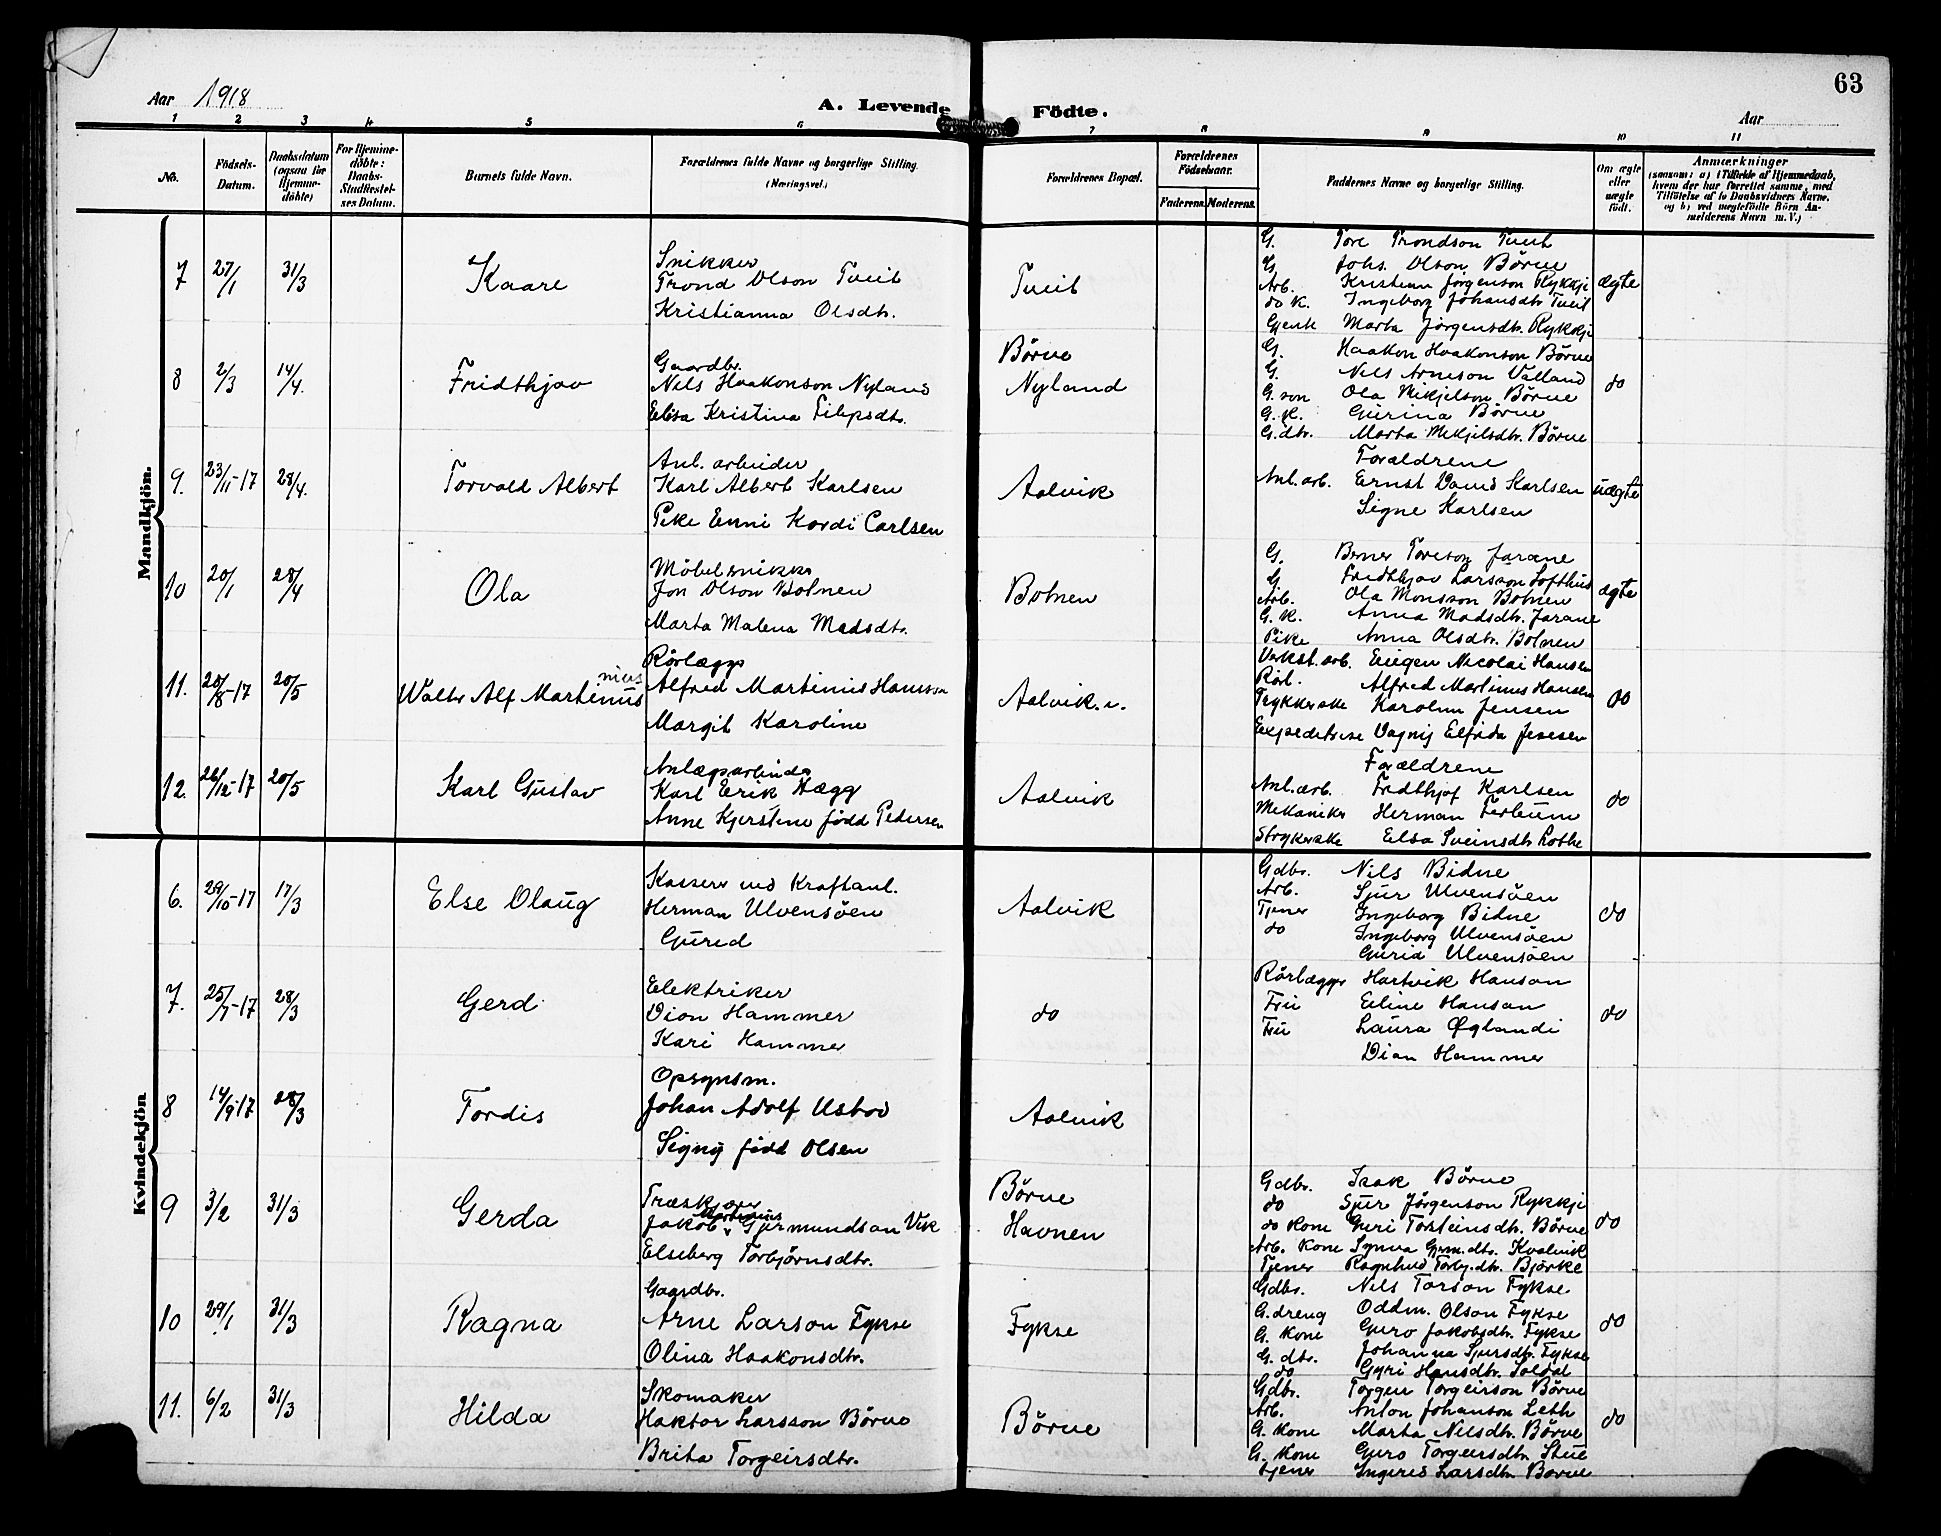 63
Aar 1918
A. Levende Födte.
Aar
1 2 3 4 5 6 7 8 9 10 11
No.
Födsels-Datum.
Daabsdatum (ogsaa for Hjemme-döbte)
For Hjemme-döbte: Daabs-Stadfæstel-ses Datum.
Barnets fulde Navn.
Forældrenes fulde Navne og borgerlige Stilling. (Næringsvei.)
Forældrenes Bopæl.
Forældrenes Födselsaar.
Faderens. Moderens.
Faddernes Navne og borgerlige Stilling.
Om ægte eller uægte født.
Anmærkninger
(saasom: a) i Tilfælde af Hjemmedaab, hvem der har forrettet samme, med Tilföielse af to Daabsvidners Navne, og b) ved uægtefödte Börn An-melderens Navn m. V.)
Mandkjön.
7 27/1 31/3 Kaare
Snikker
Trond Olson Tveit
Kristianna Olsdtr.
Tveit
G. Tore Trondson Tveit
G. Johs. Olson Börve
Arb. Kristian Jörgenson Rykkje
do K. Ingeborg Johansdtr Tveit
Gjente Marta Jörgensdtr. Rykkje
ægte
8 2/3 14/4. Fridthjov
Gaardbr.
Nils Haakonson Nyland
Elisa Kristina Filipsdtr.
Börve
Nyland
G. Haakon Haakonson Börve
G. Nils Arneson Valland
G. son Ola Mikjelson Börve
G. K. Gurina Börve
G. dtr. Marta Mikjelsdtr. Börve
do
9. 23/11-17 28/4. Torvald Albert
Anl. arbeider
Karl Albert Karlsen
Pike Enni Kordi Carlsen
Aalvik
Forældrene
Anl. arb. Ernst David Karlsen
Signe Karlsen
uægte
10 20/1 28/4 Ola
Möbelsnikker
Jon Olson Botnen
Marta Malena Madsdtr.
Botnen
G. Berner Toreson Jarane
G Fridthjov Larsson Lofthus
Arb. Ola Monsson Botnen
G. K. Anna Madsdtr. Jarane
Pike Anna Olsdtr. Botnen
ægte
11. 20/8-17 20/5 Walter Alf Martinius
nius
Rörlægger
Alfred Martinius Hansen
Margit Karoline
Aalvik
Verkst. arb. Eugen Nicolai Hansen
Rörl. Alfred Martinus Hansen
Trykkerske Karolin Jensen
Expeditrise Dagny Elfrida Jensen
do
12. 26/12-17 20/5 Karl Gustav
Anlægsarbeider
Karl Erik Hægg
Anne Kjerstine född Pedersen
Aalvik
Forældrene
Anl. arb. Fridthjof Karlsen
Mekaniker Herman
Strykerske Elsa Sveinsdtr Lothe
do
Kvindekjön
6. 29/10-17 17/3 Else Olaug
Kasserer ved Kraftanl.
Herman Ulvensöen
Gured
Aalvik
Gdbr. Nils Bidne
Arb. Sjur Ulvensöen
Tjener Ingeborg Bidne
do Ingeborg Ulvensöen
Gurid Ulvensöen
do
7. 25/7-17 28/3 Gerd
Elektriker
Dion Hammer
Kari Hammer
do
Rörlægger Hartvik Hanson
Fru Eline Hansan
Fru Laura Øglandi
Dion Hammer
do
8 14/9-17 28/3 Tordis
Opsynsm.
Johan Adolf Ustvo
Signy född Olsen
Aalvik
9 3/2 31/3 Gerda
Træskjærer
Martinius
Jakob Gjermundsan Vik
Elseberg Torbjörnsdtr.
Börve
Havnen
Gdbr. Isak Börve
do Sjur Jörgenson Rykkje
do Kone Guri Torsteinsdtr. Börve
Arb. Kone Synva Grm.dtr. Kvalvik
Tjener Ragnhild Torbj.dtr. Björke
do
10 29/1 31/3 Ragna
Gaardbr.
Arne Larson Fykse
Olina Haakonsdtr.
Fykse
Gdbr. Nils Torson Fykse
G. dreng Oddm. Olson Fykse
G. Kone Guro Jakobsdtr. Fykse
G. dtr. Johanna Sjursdtr. Fykse
do Gyri Hansdtr. Soldal
do
11. 6/2 31/3 Hilda
Skomaker
Haktor Larsson Börve
Brita Torgeirsdtr.
Börve
Gdbr. Torgeir Torgeirson Börve
Arb. Anton Johanson Leth
G. Kone Marta Nilsdtr. Börve
G. Kone Guro Torgeirsdtr. Stue
Tjener Ingeres Larsdtr Börve
do